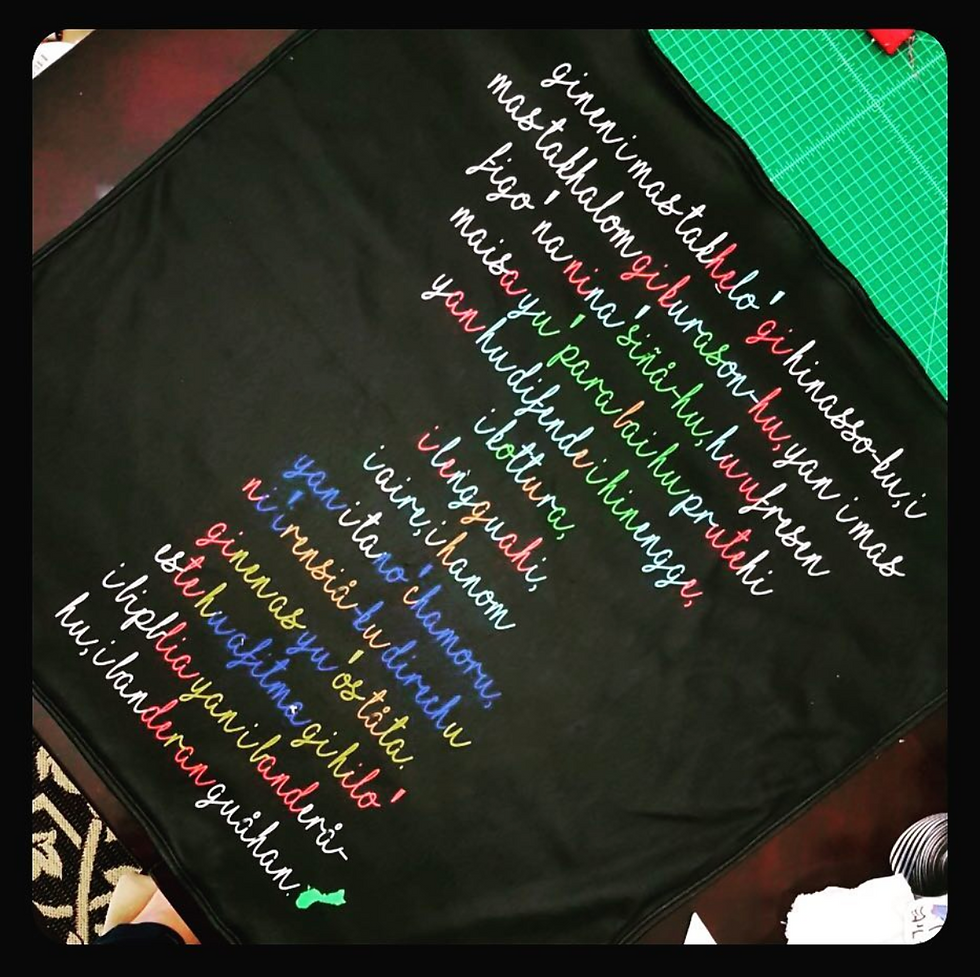 ginen i mas takhelo' gi hinasso-ku, i
mas takhalom gi kurason-hu, yan i mas
figo' na nina'siñå-hu, hu ufresen
maisa yu' para bai hu prutehi
yan hu difende i hinengge,
i kottura,
i lengguahi,
i aire, i hanom
yan i tano' chamoru,
ni' irensiå-ku direchu
ginen as yu'os tåta.
este hu afitma gi hilo'
i bipblia yan i banderå-
hu, i banderan guåhan.